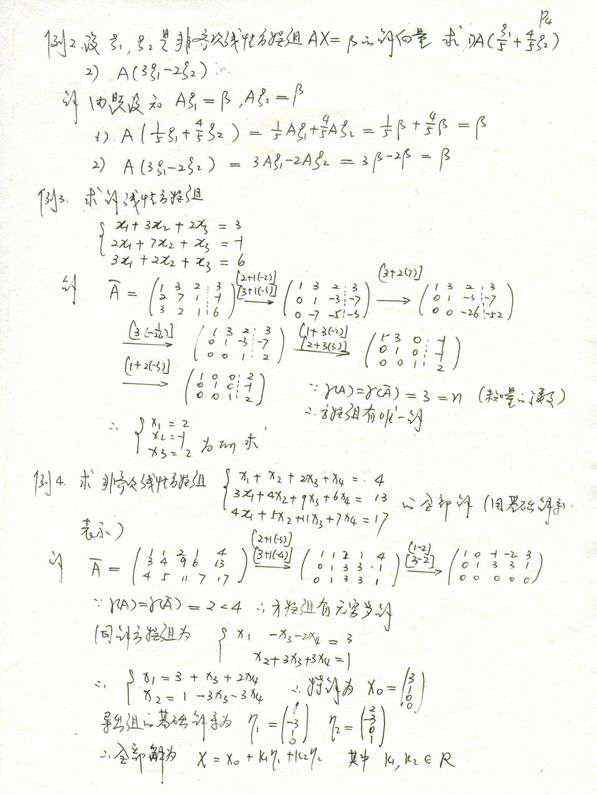 P4
例2. 设 ξ₁, ξ₂ 是非齐次线性方程组 AX=β 的解向量 求 1) A(ξ₁/5 + 4/5 ξ₂)
2) A(3ξ₁-2ξ₂)
解 由题设知 Aξ₁=β, Aξ₂=β
1) A(1/5 ξ₁ + 4/5 ξ₂) = 1/5 Aξ₁ + 4/5 Aξ₂ = 1/5 β + 4/5 β = β
2) A(3ξ₁-2ξ₂) = 3Aξ₁-2Aξ₂ = 3β-2β = β
例3. 求解线性方程组
x₁+3x₂+2x₃ = 3
2x₁+7x₂+x₃ = -1
3x₁+2x₂+x₃ = 6
解 Ā = (1 3 2 3; 2 7 1 -1; 3 2 1 6) [2+1(-2)] [3+1(-3)] → (1 3 2 3; 0 1 -3 -7; 0 -7 -5 -3) [3+2(7)] → (1 3 2 3; 0 1 -3 -7; 0 0 -26 -52)
[3(-1/26)] → (1 3 2 3; 0 1 -3 -7; 0 0 1 2) [1+3(-2)] [2+3(3)] → (1 3 0 -1; 0 1 0 -1; 0 0 1 2)
[1+2(-3)] → (1 0 0 2; 0 1 0 -1; 0 0 1 2) ∵ r(A)=r(Ā)=3=n (未知量的个数)
∴ 方程组有唯一解
∴ { x₁=2 x₂=-1 x₃=2 为所求
例4. 求非齐次线性方程组 { x₁+x₂+2x₃+x₄ = 4
3x₁+4x₂+9x₃+6x₄ = 13 的全部解 (用基础解系
4x₁+5x₂+11x₃+7x₄ = 17
表示)
解 Ā = (1 1 2 1 4; 3 4 9 6 13; 4 5 11 7 17) [2+1(-3)] [3+1(-4)] → (1 1 2 1 4; 0 1 3 3 1; 0 1 3 3 1) [1-2] [3-2] → (1 0 -1 -2 3; 0 1 3 3 1; 0 0 0 0 0)
∵ r(A)=r(Ā)=2<4 ∴ 方程组有无穷多解
同解方程组为 { x₁ -x₃-2x₄ = 3
x₂+3x₃+3x₄=1
∴ { x₁ = 3 + x₃+2x₄ x₂ = 1 -3x₃-3x₄ ∴ 特解为 X₀ = (3 1 0 0)
导出组的基础解系为 η₁ = (1 -3 1 0) η₂ = (2 -3 0 1)
∴ 全部解为 X = X₀+k₁η₁+k₂η₂ 其中 k₁, k₂ ∈ R